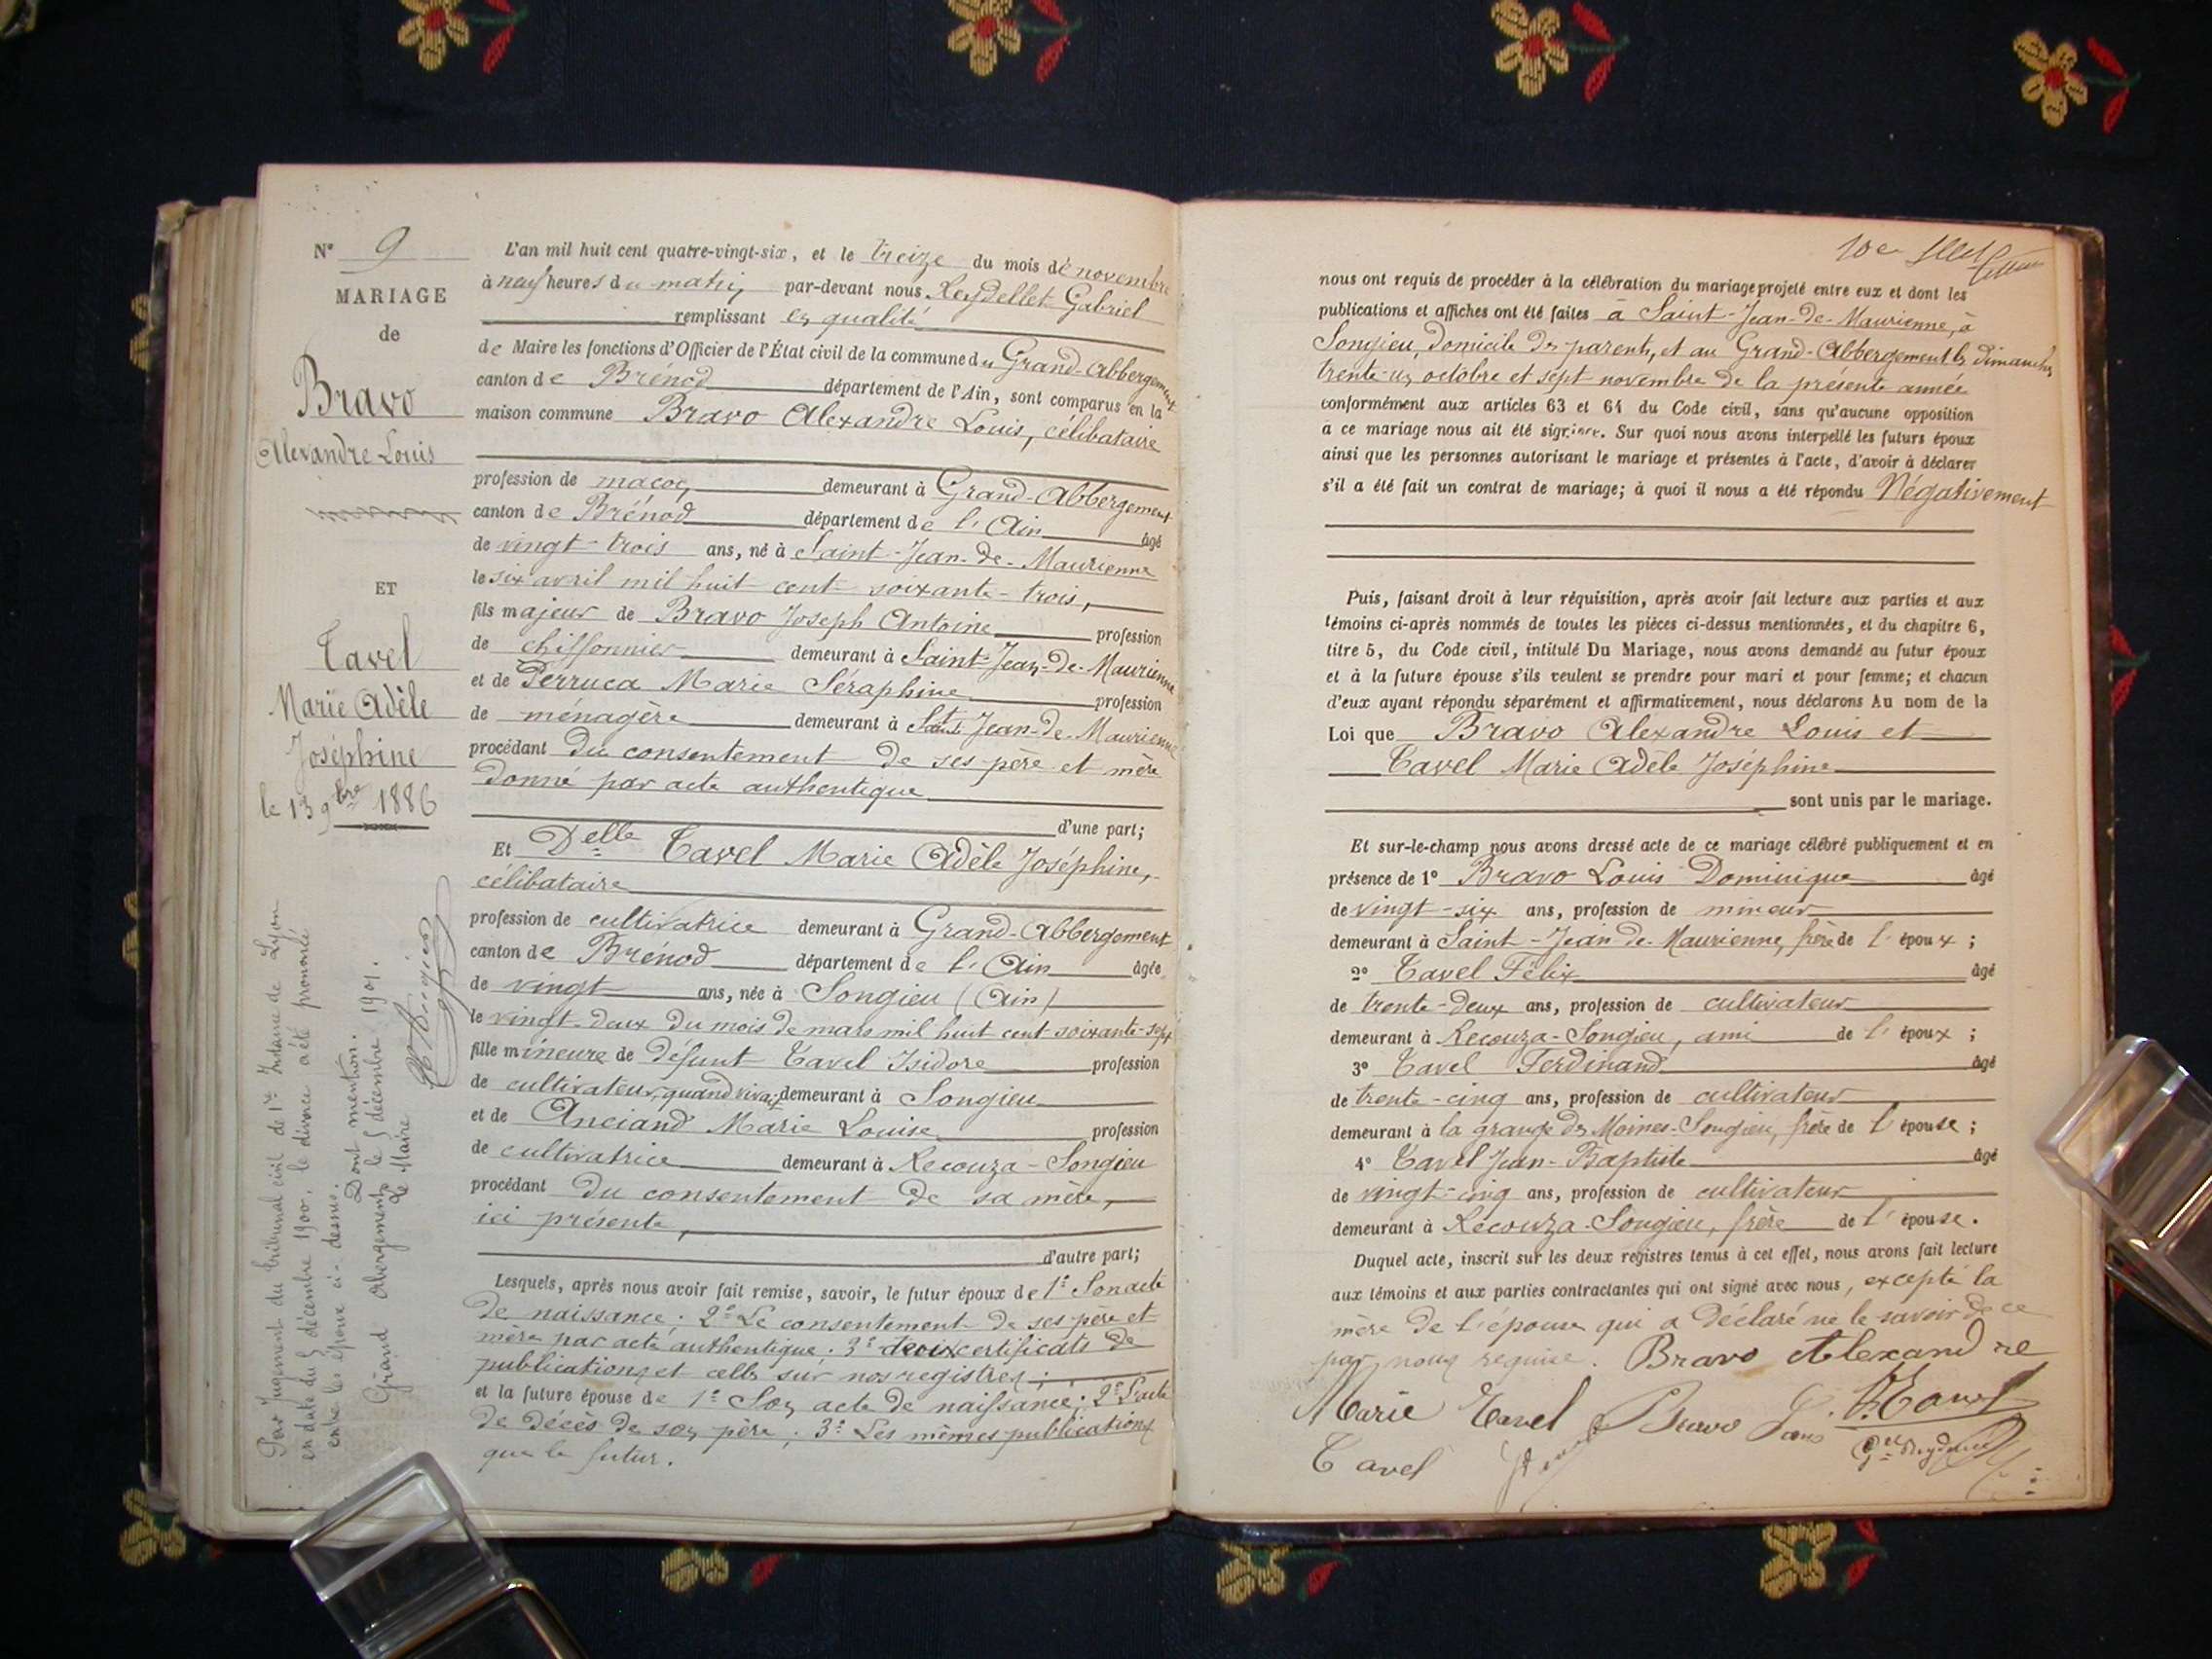 N° 9
MARIAGE
de
Bravo
Alexandre Louis
ET
Tavel
Marie Adèle
Joséphine
le 13 9bre 1886
Par jugement du tribunal civil de 1re Instance de Lyon
en date du 5 décembre 1900, le divorce a été prononcé
entre les époux ci-dessus.
Dont mention.
Grand Abergement, le 5 décembre 1901.
Le Maire
L'an mil huit cent quatre-vingt-six, et le treize du mois de novembre
à neuf heures du matin, par-devant nous Reydellet Gabriel
remplissant en qualité
de Maire les fonctions d'Officier de l'État civil de la commune du Grand-Abbergement
canton de Brénod département de l'Ain, sont comparus en la
maison commune Bravo Alexandre Louis, célibataire
profession de maçon demeurant à Grand-Abbergement
canton de Brénod département de l'Ain âgé
de vingt-trois ans, né à Saint-Jean-de-Maurienne
le six avril mil huit cent soixante-trois,
fils majeur de Bravo Joseph Antoine profession
de chiffonnier demeurant à Saint-Jean-de-Maurienne
et de Perruca Marie Séraphine profession
de ménagère demeurant à Saint Jean-de-Maurienne
procédant du consentement de ses père et mère
donné par acte authentique
d'une part;
Et Delle Tavel Marie Adèle Joséphine,
célibataire
profession de cultivatrice demeurant à Grand-Abbergement
canton de Brénod département de l'Ain âgée
de vingt ans, née à Songieu (Ain)
le vingt-deux du mois de mars mil huit cent soixante-six
fille mineure de défunt Tavel Isidore profession
de cultivateur, quand vivait demeurant à Songieu
et de Anciand Marie Louise profession
de cultivatrice demeurant à Recouza-Songieu
procédant du consentement de sa mère,
ici présente,
d'autre part;
Lesquels, après nous avoir fait remise, savoir, le futur époux de 1° Son acte
de naissance; 2° Le consentement de ses père et
mère par acte authentique. 3° deux certificats de
publications et celle sur nos registres;
et la future épouse de 1° Son acte de naissance; 2° L'acte
de décès de son père; 3° Les mêmes publications
que le futur.
nous ont requis de procéder à la célébration du mariage projeté entre eux et dont les
publications et affiches ont été faites à Saint-Jean-de-Maurienne, à
Songieu, domicile des parents, et au Grand-Abbergement les dimanches
trente-un octobre et sept novembre de la présente année
conformément aux articles 63 et 64 du Code civil, sans qu'aucune opposition
à ce mariage nous ait été signifiée. Sur quoi nous avons interpellé les futurs époux
ainsi que les personnes autorisant le mariage et présentes à l'acte, d'avoir à déclarer
s'il a été fait un contrat de mariage; à quoi il nous a été répondu Négativement
Puis, faisant droit à leur réquisition, après avoir fait lecture aux parties et aux
témoins ci-après nommés de toutes les pièces ci-dessus mentionnées, et du chapitre 6,
titre 5, du Code civil, intitulé Du Mariage, nous avons demandé au futur époux
et à la future épouse s'ils veulent se prendre pour mari et pour femme; et chacun
d'eux ayant répondu séparément et affirmativement, nous déclarons Au nom de la
Loi que Bravo Alexandre Louis et
Tavel Marie Adèle Joséphine
sont unis par le mariage.
Et sur-le-champ nous avons dressé acte de ce mariage célébré publiquement et en
présence de 1° Bravo Louis Dominique âgé
de vingt-six ans, profession de mineur
demeurant à Saint-Jean-de-Maurienne, frère de l'époux;
2° Tavel Félix âgé
de trente-deux ans, profession de cultivateur
demeurant à Recouza-Songieu, ami de l'époux;
3° Tavel Ferdinand âgé
de trente-cinq ans, profession de cultivateur
demeurant à la grange des Moines-Songieu, frère de l'épouse;
4° Tavel Jean-Baptiste âgé
de vingt-cinq ans, profession de cultivateur
demeurant à Recouza-Songieu, frère de l'épouse.
Duquel acte, inscrit sur les deux registres tenus à cet effet, nous avons fait lecture
aux témoins et aux parties contractantes qui ont signé avec nous, excepté la
mère de l'épouse qui a déclaré ne le savoir de ce
par nous requise. Bravo Alexandre
Marie Tavel Bravo Louis Tavel
Tavel